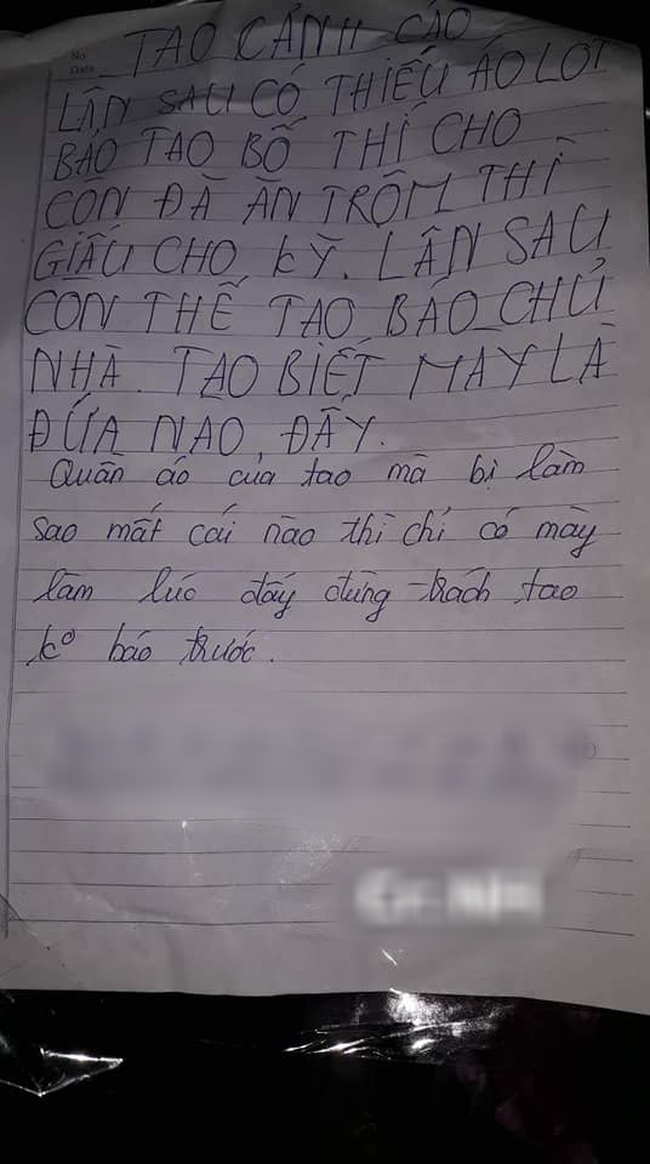 No.
Date
TAO CẢNH CÁO
LẦN SAU CÓ THIẾU ÁO LÓT
BẢO TAO BỐ THÍ CHO
CÒN ĐÃ ĂN TRỘM THÌ
GIẤU CHO KỸ. LẦN SAU
CÒN THẾ TAO BÁO CHỦ
NHÀ. TAO BIẾT MÀY LÀ
ĐỨA NÀO, ĐẤY.
Quần áo của tao mà bị làm
sao mất cái nào thì chỉ có mày
làm lúc đấy đừng trách tao
kº báo trước.